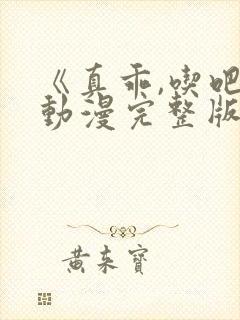 《真乖,喫吧
動漫完整版
黄来寶